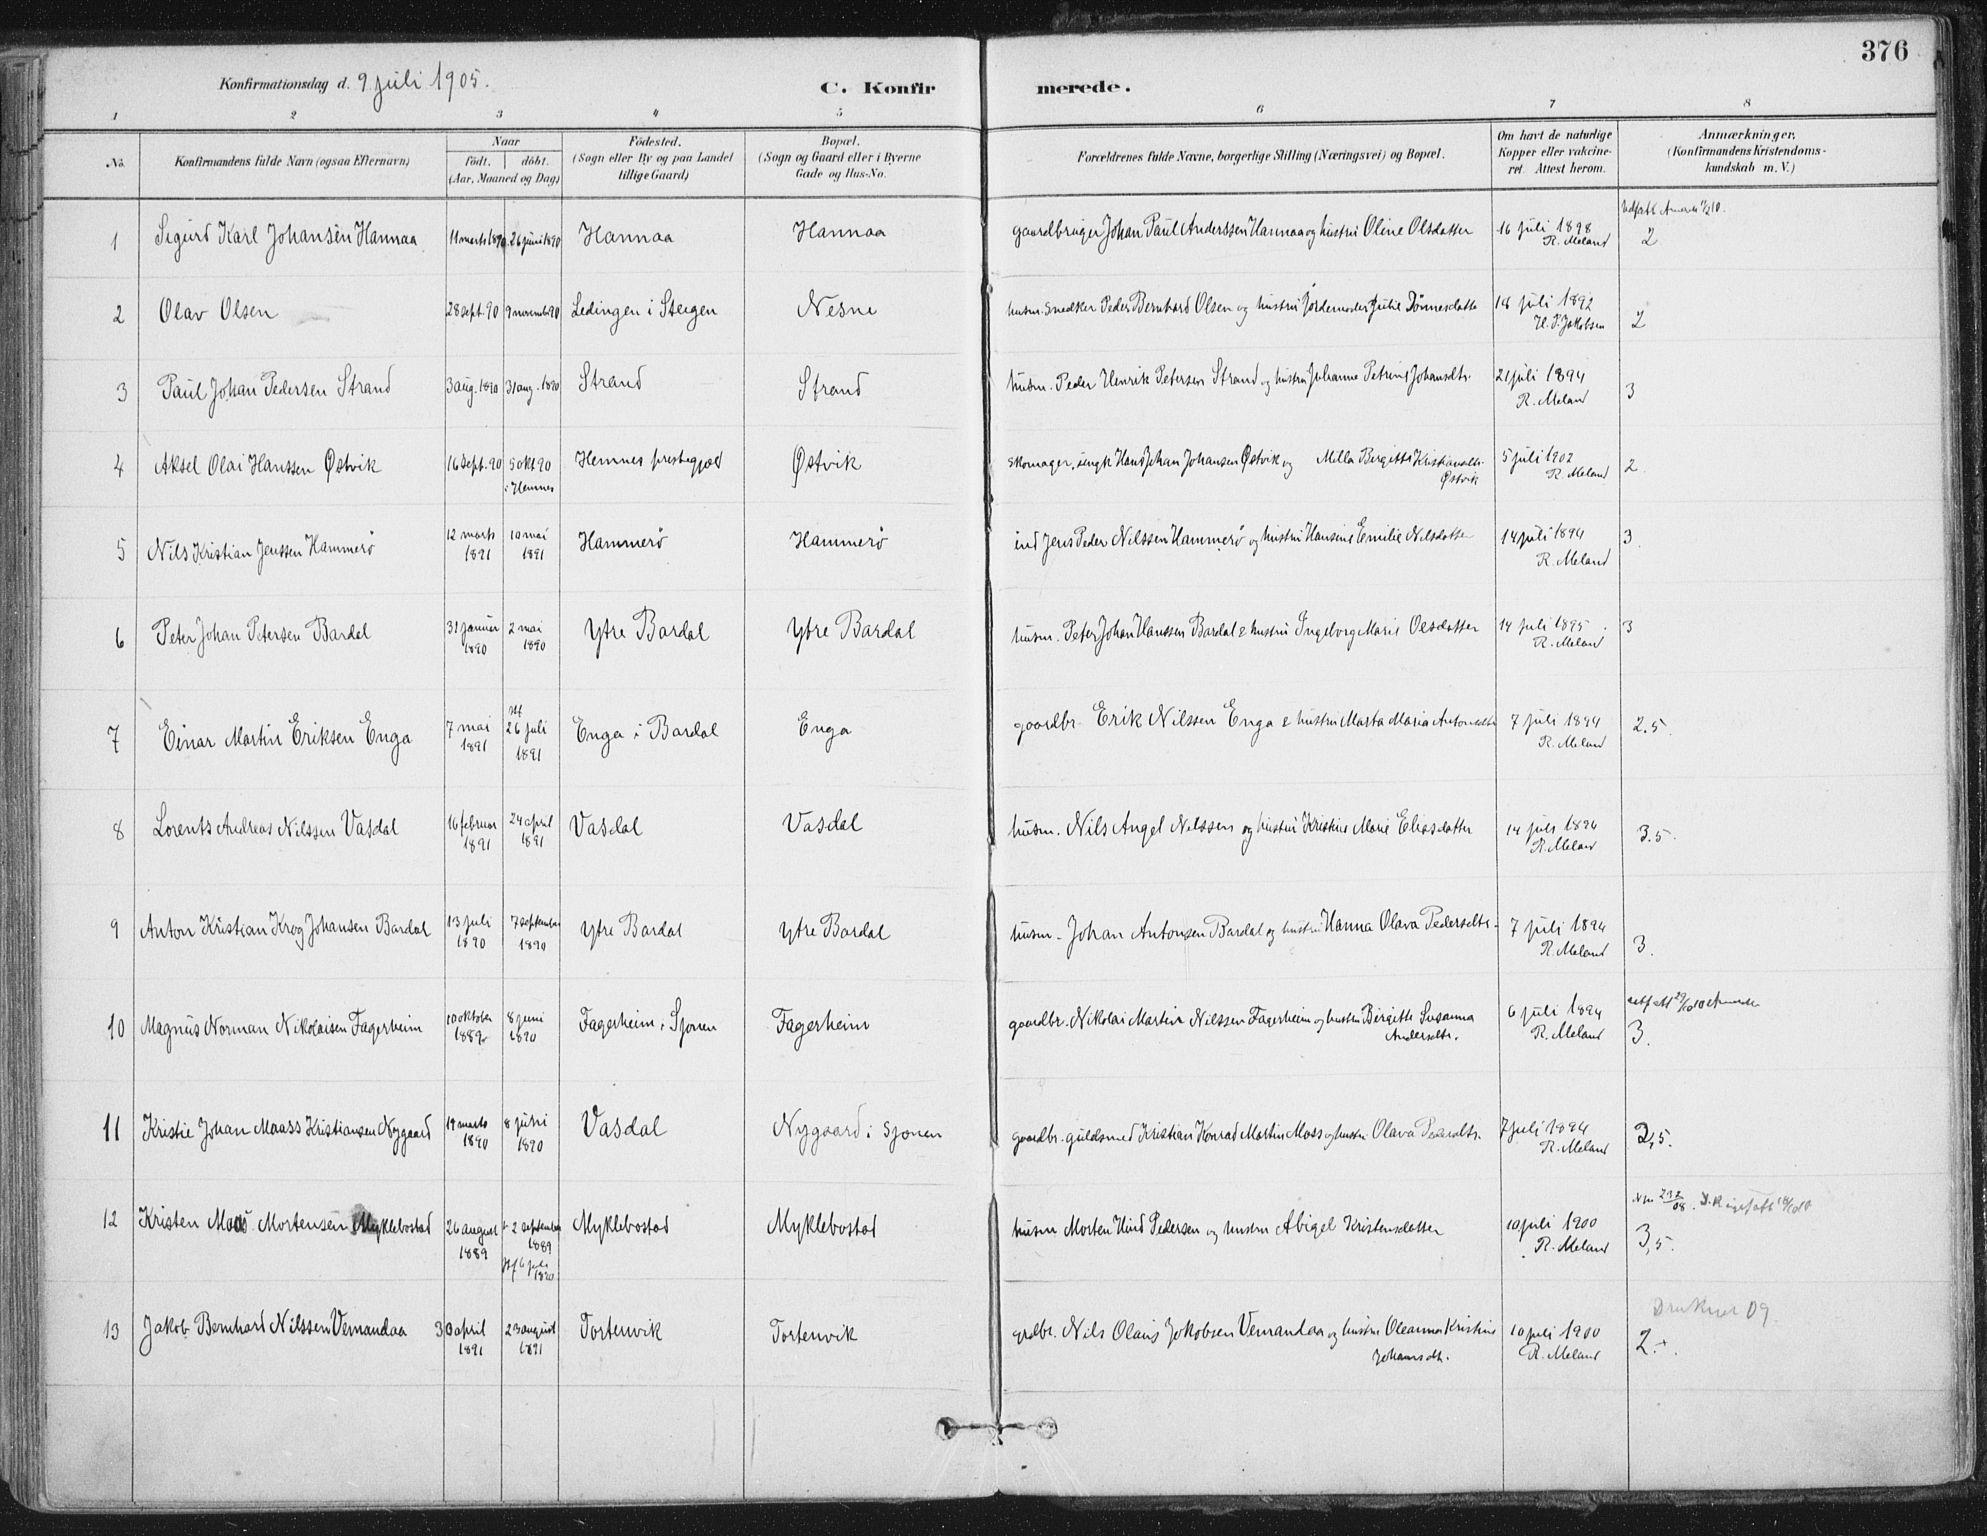 376
Konfirmationsdag d. 9 juli 1905.
C. Konfirmerede.
1 2 3 4 5 6 7 8
No. Konfirmandens fulde Navn (ogsaa Efternavn) Naar født. døbt. (Aar, Maaned og Dag) Fødested. (Sogn eller By og paa Landet tillige Gaard) Bopæl. (Sogn og Gaard eller i Byerne Gade og Hus-No. Forældrenes fulde Navne, borgerlige Stilling (Næringsvei) og Bopæl. Om havt de naturlige Kopper eller vakcineret. Attest herom. Anmærkninger, (Konfirmandens Kristendomskundskab m. V.)
1 Sigurd Karl Johansen Hannaa 11 marts 1890 26 juni 1890 Hannaa Hannaa gaardbruger Johan Paul Anderssen Hannaa og hustru Oline Olsdatter 16 juli 1898 R. Meland 2
2 Olav Olsen 28 sept. 90 9 novembr 90 Ledingen i Steigen Nesne husm. snedker Peder Bernhard Olsen og hustru jordemoder Julie Dønnesdatter 18 juli 1892 H. P. Jakobsen 2
3 Paul Johan Pedersen Strand 3 aug. 1890 31 aug. 1890 Strand Strand husm. Peder Henrik Petersen Strand og hustru Johanne Petrine Johansdtr. 21 juli 1894 R. Meland 3
4 Aksel Olai Hanssen Østvik 16 sept. 90 5 okt 90 i Hemnes Hemnes prestegjæld Østvik skomager, ungk Hans Johan Johansen Østvik og Milla Birgitte Kristiansdtr. Østvik 5 juli 1902 R. Meland 2.
5 Nils Kristian Jenssen Hammerø 12 marts 1891 10 mai 1891 Hammerø Hammerø ind Jens Peder Nilssen Hammerø og hustru Hansine Emilie Nilsdatter 14 juli 1894 R. Meland 3.
6 Peter Johan Petersen Bardal 31 januar 1890 2 mai 1890 Ytre Bardal Ytre Bardal husm. Peter Johan Hanssen Bardal & hustru Ingeborg Marie Olsdatter 14 juli 1895 R. Meland 3
7 Einar Martin Eriksen Enga 7 mai 1891 26 juli 1891 Enga i Bardal Enga gaardbr. Erik Nilssen Enga & hustru Marta Maria Antonsdtr 7 juli 1894 R. Meland 2.5.
8 Lorents Andreas Nilssen Vasdal 16 februar 1891 24 april 1891 Vasdal Vasdal husm. Nils Angel Nilssen og hustru Kristine Marie Eliasdatter 14 juli 1894 R. Meland 3.5.
9 Anton Kristian Krog Johansen Bardal 13 juli 1890 7 september 1890 Ytre Bardal Ytre Bardal husm. Johan Antonsen Bardal og hustru Hanna Olava Pedersdtr. 7 juli 1894 R. Meland 3.
10 Magnus Norman Nikolaisen Fagerheim 10 oktober 1889 8 juni 1890 Fagerheim i Sjonen Fagerheim gaardbr. Nikolai Martin Nilssen Fagerheim og hustru Birgitte Susanna Andersdtr. 6 juli 1894 R. Meland 3.
11 Kristie Johan Maass Kristiansen Nygaard 19 marts 1890 8 juni 1890 Vasdal Nygaard i Sjonen gaardbr. guldsmed Kristian Konrad Martin Moss og hustru Olava Pedersdtr. 7 juli 1894 R. Meland 2,5.
12 Kristen Moss Mortensen Myklebostad 26 august 1889 2 september 1889 6 juli 1890 Myklebostad Myklebostad husm Morten Hind Pedersen og hustru Abigel Kristensdatter 10 juli 1900 R. Meland 3,5.
13 Jakob Bernhard Nilssen Vemandaa 30 april 1891 23 august 1891 Tortenvik Tortenvik grdbr. Nils Olaus Jakobsen Vemandaa og hustru Oleanna Kristine Johansdtr. 10 juli 1900 R. Meland Druknet 09. 2.